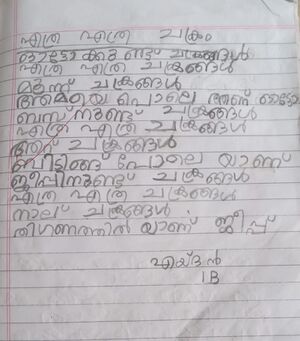 എത്ര എത്ര ചക്രം
ഓട്ടോക്കുണ്ട് ചക്രങ്ങൾ
എത്ര എത്ര ചക്രങ്ങൾ
മൂന്ന് ചക്രങ്ങൾ
അമ്മയെ പൊലെ ആണ് ഓട്ടോ
ബസ്സിനുണ്ട് ചക്രങ്ങൾ
എത്ര എത്ര ചക്രങ്ങൾ
ആറ് ചക്രങ്ങൾ
പോലെ യാണ്
ജീപ്പിനുണ്ട് ചക്രങ്ങൾ
എത്ര എത്ര ചക്രങ്ങൾ
നാല് ചക്രങ്ങൾ
യാണ് ജീപ്പ്
എയ്ദൻ
1B